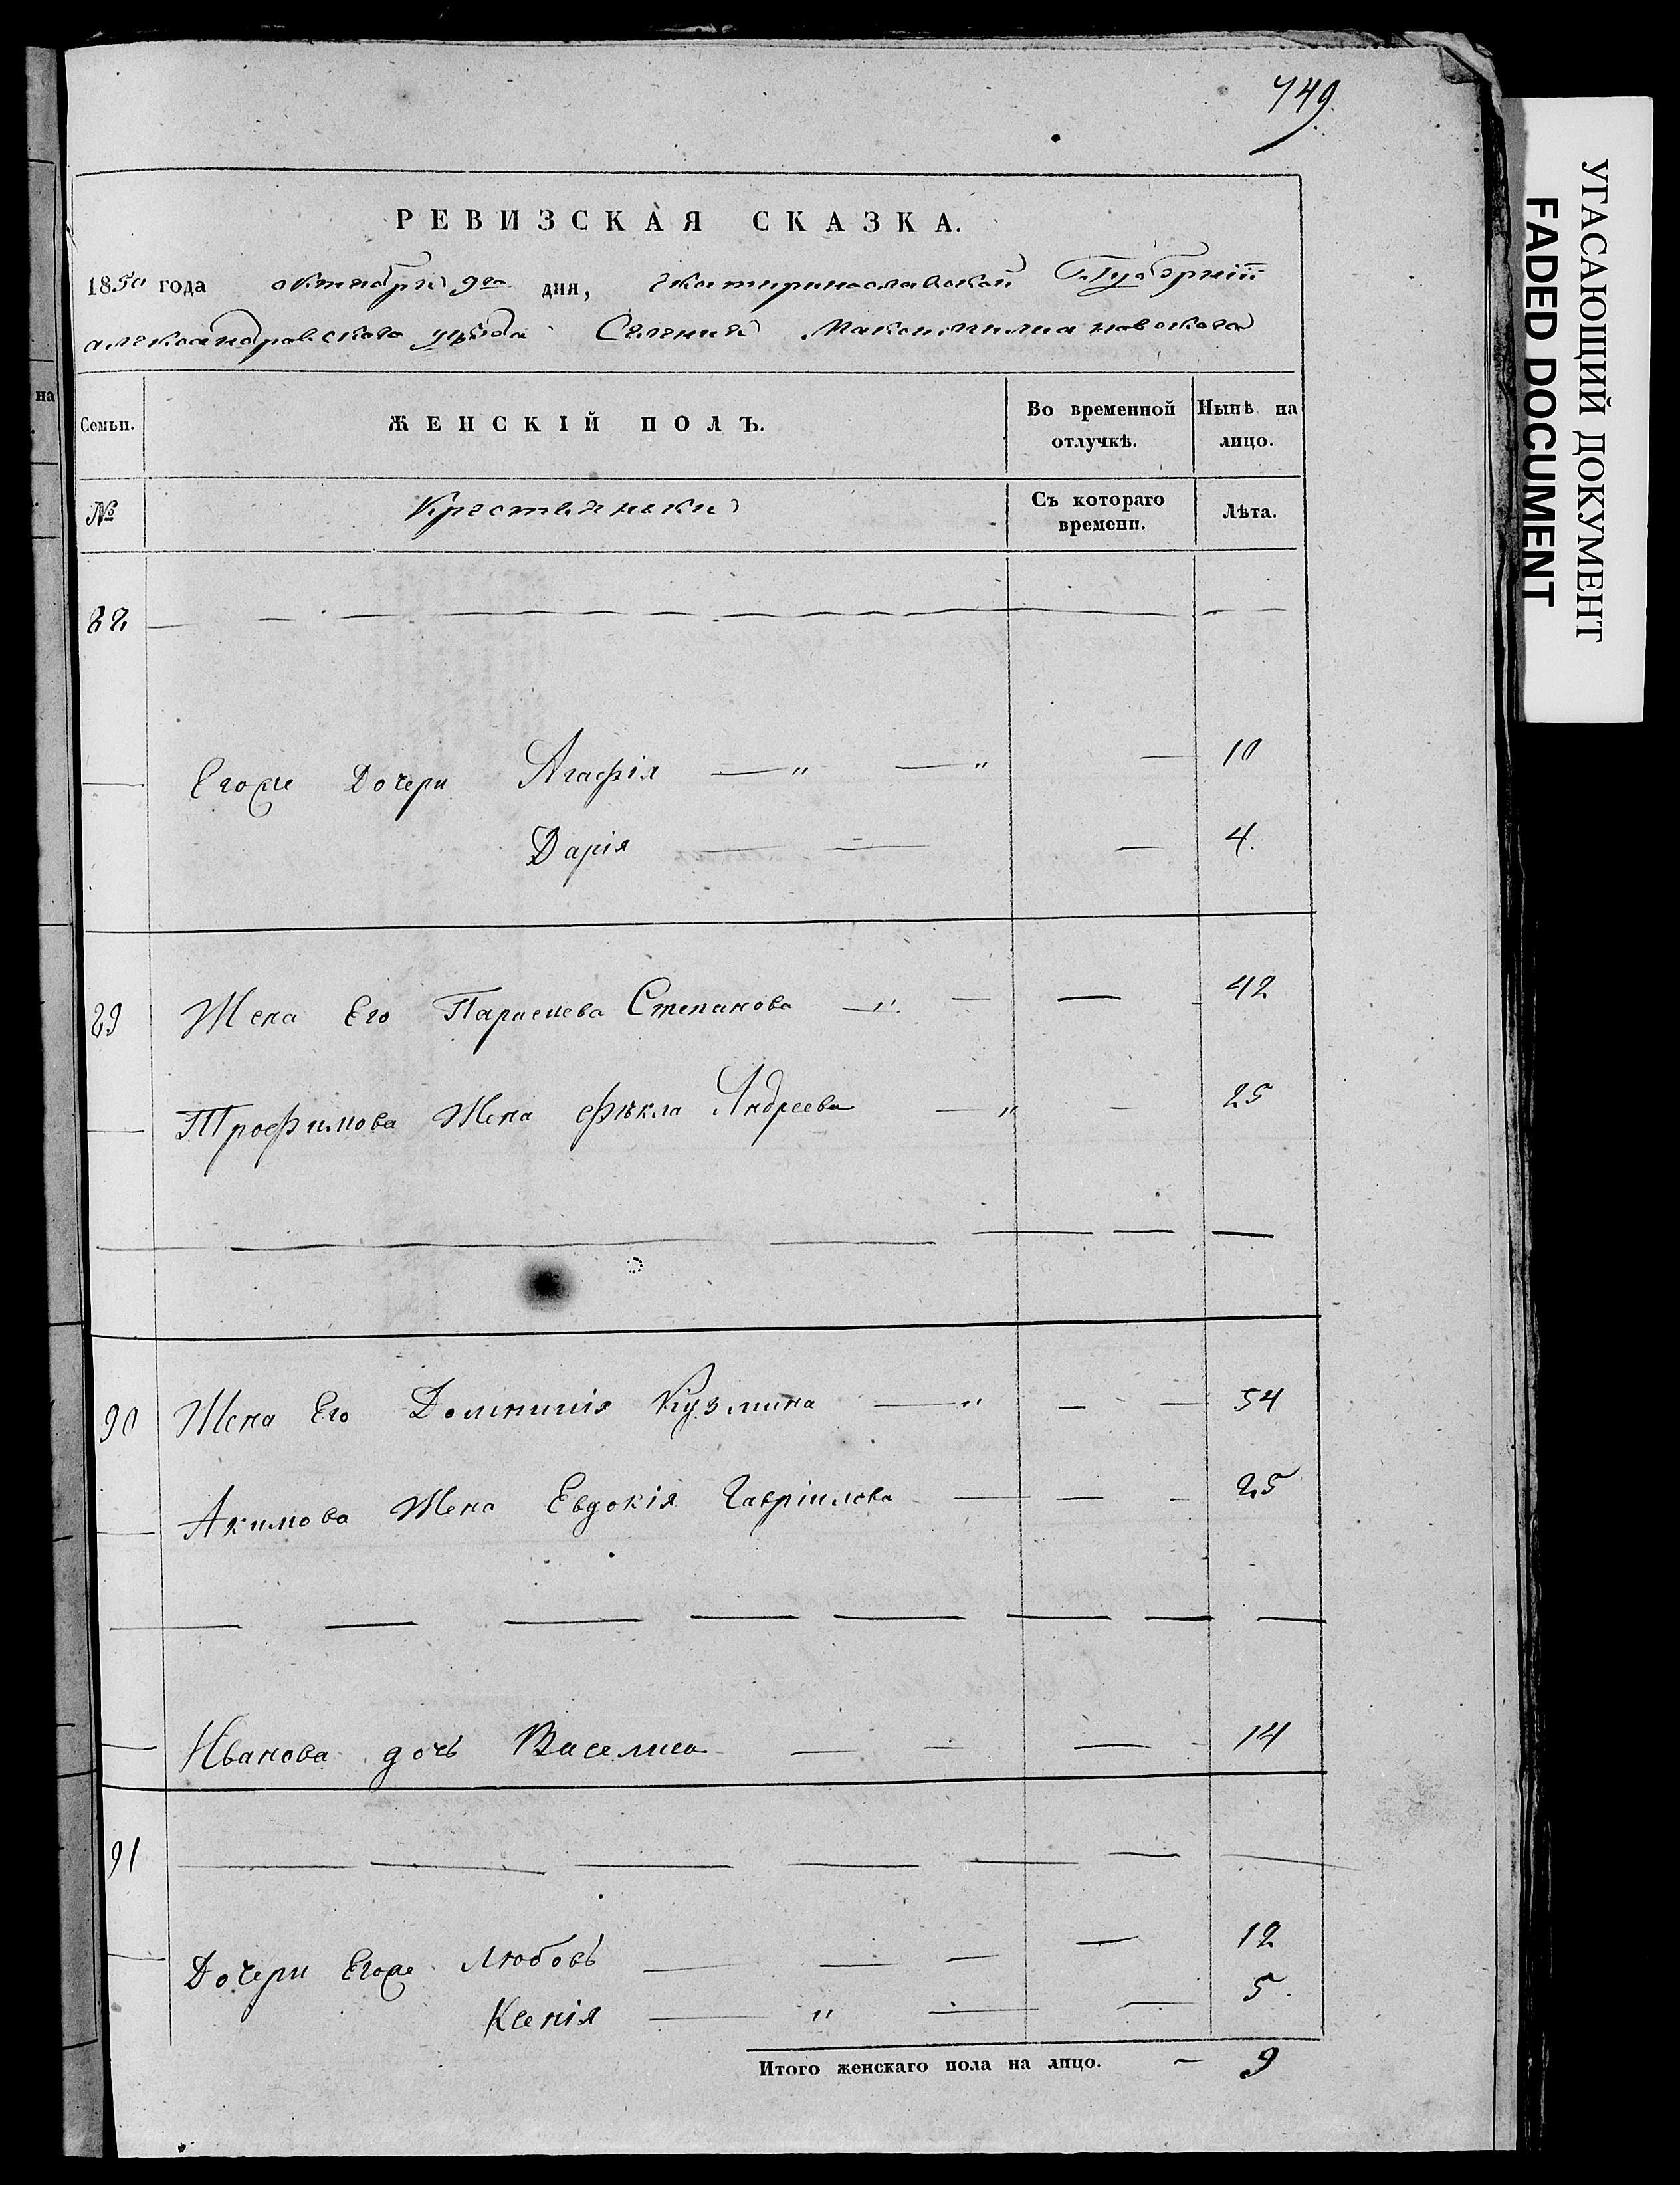 749.
РЕВИЗСКАЯ СКАЗКА.
1850 года октября 9го дня, Екатеринославской Губерніи
александровского уѣзда Селения Максимилиановского
на
Семьи. ЖЕНСКІЙ ПОЛЪ. Во временной отлучкѣ. Нынѣ на лицо.
№ Крестьянки Съ котораго времени. Лѣта.
88
Егоже Дочери Агафія — " — " — 10
Дарія — — — 4.
89 Жена Его Параскева Степанова — " — — 42
Трофимова Жена Фекла Андреева — " — 25
90 Жена Его Домникия Кузмина — " — — 54
Акимова Жена Евдокія Гавріилова — — — 25
Иванова дочь Василиса — — — 14
91
Дочери Егоже Любовь — — — — 12
Ксенія — " — — 5.
Итого женскаго пола на лицо. — 9
УГАСАЮЩИЙ ДОКУМЕНТ
FADED DOCUMENT